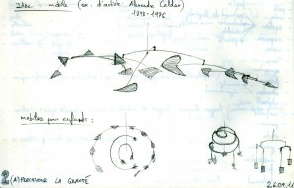 mobile (ex. d'artiste: Alexander Calder)
1898-1976
mobiles pour enfants:
2 (A) PERCEVOIR LA GRAVITÉ